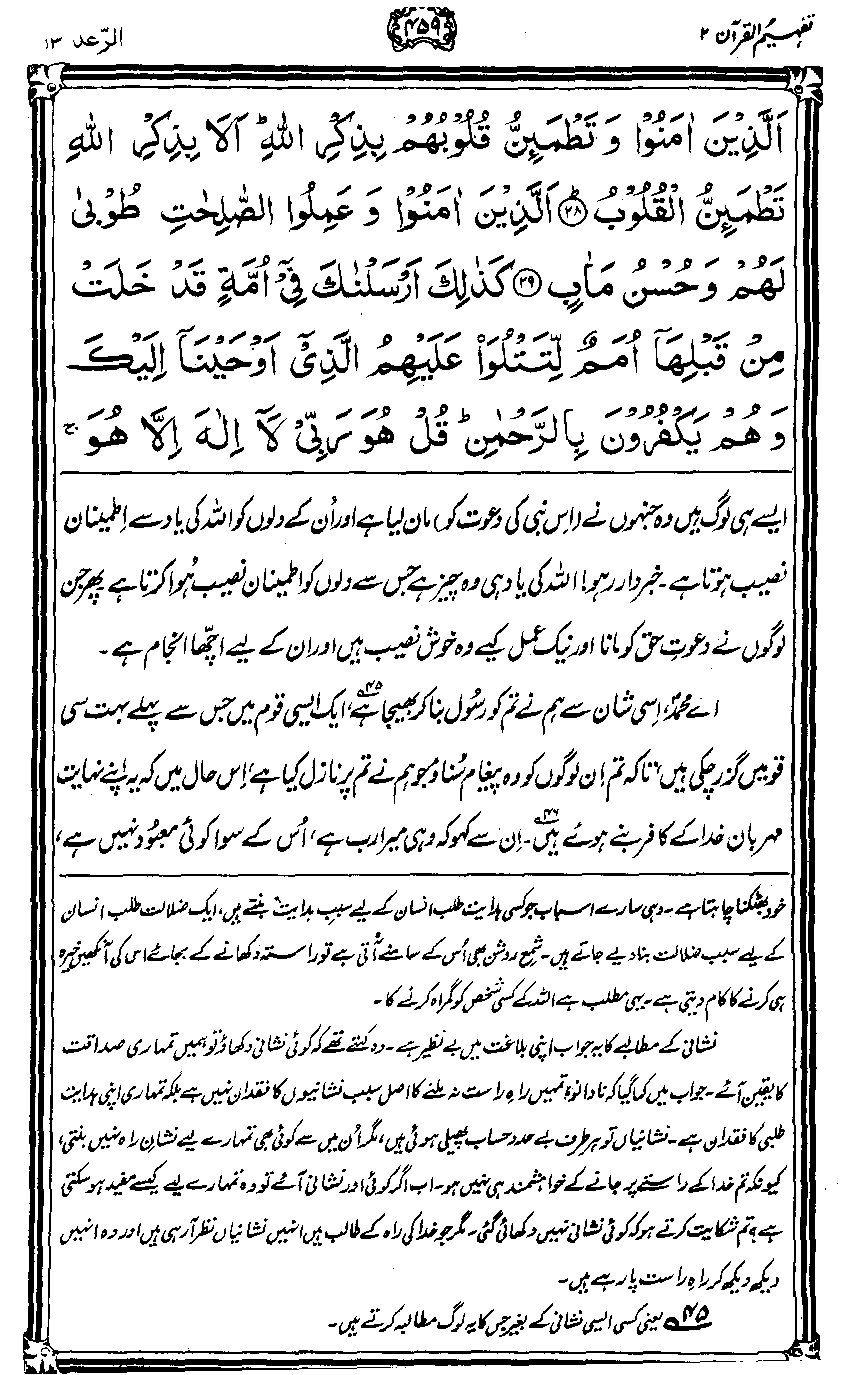 تفہیم القرآن ۲
۴۵۹
الرّعد ۱۳
اَلَّذِيْنَ اٰمَنُوْا وَ تَطْمَىِٕنُّ قُلُوْبُهُمْ بِذِكْرِ اللّٰهِ ؕ اَلَا بِذِكْرِ اللّٰهِ
تَطْمَىِٕنُّ الْقُلُوْبُ ﴿۲۸﴾ اَلَّذِيْنَ اٰمَنُوْا وَ عَمِلُوا الصّٰلِحٰتِ طُوْبٰى
لَهُمْ وَ حُسْنُ مَاٰبٍ ﴿۲۹﴾ كَذٰلِكَ اَرْسَلْنٰكَ فِيْۤ اُمَّةٍ قَدْ خَلَتْ
مِنْ قَبْلِهَاۤ اُمَمٌ لِّتَتْلُوَا۟ عَلَيْهِمُ الَّذِيْۤ اَوْحَيْنَاۤ اِلَيْكَ
وَ هُمْ يَكْفُرُوْنَ بِالرَّحْمٰنِ ؕ قُلْ هُوَ رَبِّيْ لَاۤ اِلٰهَ اِلَّا هُوَ ۚ
ایسے ہی لوگ ہیں وہ جنہوں نے (اِس نبی کی دعوت کو) مان لیا ہے اور اُن کے دلوں کو اللہ کی یاد سے اطمینان
نصیب ہوتا ہے۔ خبردار رہو! اللہ کی یاد ہی وہ چیز ہے جس سے دلوں کو اطمینان نصیب ہُوا کرتا ہے پھر جن
لوگوں نے دعوتِ حق کو مانا اور نیک عمل کیے وہ خوش نصیب ہیں اور ان کے لیے اچھا انجام ہے۔
اے محمدؐ، اِسی شان سے ہم نے تم کو رسُول بنا کر بھیجا ہے ۴۵، ایک ایسی قوم میں جس سے پہلے بہت سی
قومیں گزر چکی ہیں، تاکہ تم اِن لوگوں کو وہ پیغام سُناؤ جو ہم نے تم پر نازل کیا ہے، اِس حال میں کہ یہ اپنے نہایت
مہربان خدا کے کافر بنے ہوئے ہیں ۴۶۔ اِن سے کہو کہ وہی میرا رب ہے، اُس کے سوا کوئی معبُود نہیں ہے،
خود بھٹکنا چاہتا ہے۔ وہی سارے اسباب جو کسی ہدایت طلب انسان کے لیے سببِ ہدایت بنتے ہیں، ایک ضلالت طلب انسان
کے لیے سبب ضلالت بنا دیے جاتے ہیں۔ شمعِ روشن بھی اُس کے سامنے آتی ہے تو راستہ دکھانے کے بجائے اس کی آنکھیں خیرہ
ہی کرنے کا کام دیتی ہے۔ یہی مطلب ہے اللہ کے کسی شخص کو گمراہ کرنے کا۔
نشانی کے مطالبے کا یہ جواب اپنی بلاغت میں بے نظیر ہے۔ وہ کہتے تھے کہ کوئی نشانی دکھاؤ تو ہمیں تمہاری صداقت
کا یقین آئے۔ جواب میں کہا گیا کہ نادانو! تمہیں راہِ راست نہ ملنے کا اصل سبب نشانیوں کا فقدان نہیں ہے بلکہ تمہاری اپنی ہدایت
طلبی کا فقدان ہے۔ نشانیاں تو ہر طرف بے حد و حساب پھیلی ہوئی ہیں، مگر اُن میں سے کوئی بھی تمہارے لیے نشانِ راہ نہیں بنتی،
کیونکہ تم خدا کے راستے پر جانے کے خواہشمند ہی نہیں ہو۔ اب اگر کوئی اور نشانی آئے تو وہ تمہارے لیے کیسے مفید ہو سکتی
ہے؟ تم شکایت کرتے ہو کہ کوئی نشانی نہیں دکھائی گئی۔ مگر جو خدا کی راہ کے طالب ہیں انہیں نشانیاں نظر آ رہی ہیں اور وہ انہیں
دیکھ دیکھ کر راہِ راست پا رہے ہیں۔
۴۵ یعنی کسی ایسی نشانی کے بغیر جس کا یہ لوگ مطالبہ کرتے ہیں۔